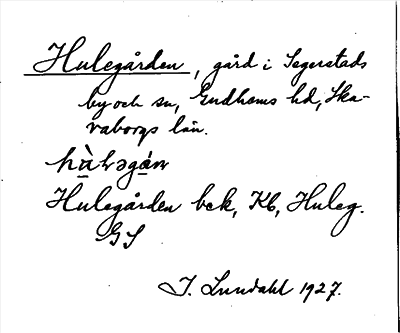 Hulegården, gård i Segerstads
by och sn, Gudhems hd, Ska-
raborgs län.
hùləgán
Hulegården bek, Kb, Huleg.
GS
I. Lundahl 1927.